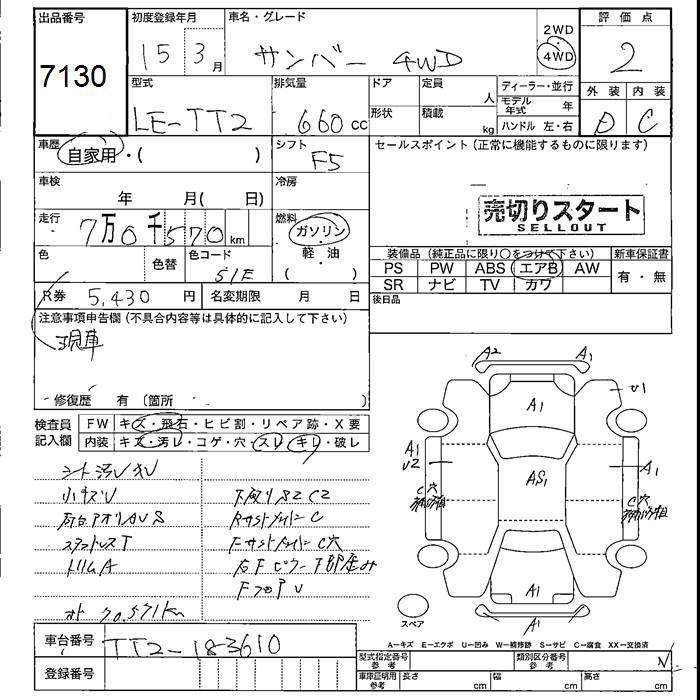 出品番号 初度登録年月 車名・グレード 2WD 評価点
7130 15 3月 サンバー 4WD 4WD 2
型式 排気量 ドア 定員 ディーラー・並行 外装 内装
人 モデル年式 年
LE-TT2 660cc 形状 積載 kg ハンドル 左・右 D C
車歴 自家用・( ) シフト F5 セールスポイント(正常に機能するものに限ります)
車検 年 月( 日) 冷房
売切りスタート
SELLOUT
走行 7万0千570km 燃料 ガソリン
軽・油
( )
色 色替 色コード 51E
装備品(純正品に限り○をつけて下さい) 新車保証書
PS PW ABS エアB AW 有・無
SR ナビ TV カワ
R券 5,430円 名変期限 月 日 後日品
注意事項申告欄(不具合内容等は具体的に記入して下さい)
現車
修復歴 有 〔箇所 〕
検査員記入欄 FW キズ・飛石・ヒビ割・リペア跡・X要
内装 キズ・汚レ・コゲ・穴・スレ・キレ・破レ
A2 A1
A1 U1
A1 U2 AS1 A1
C穴 C穴
A1
A1
スペア
シート汚レ
小キズU
荷台アオリAUS
トリムA
下廻りS2C2
Rサイドメンバー C
Fサイドメンバー C穴
右Fピラー下部
FフロアU
70,571km
A=キズ E=エクボ U=凹み W=補修跡 S=サビ C=腐食 XX=交換済
車台番号 TT2-183610
型式指定番号 参考 類別区分番号 参考 N
登録番号 車庫証明用 参考 長さ cm 幅 cm 高さ cm